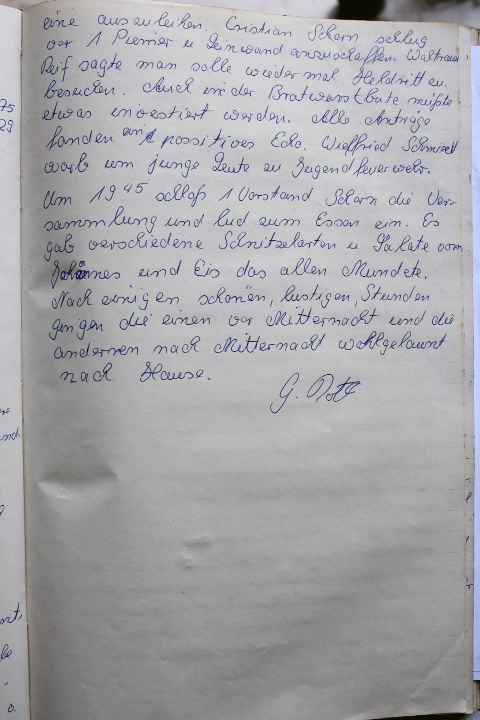 eine auszuleihen. Cristian Schorn schlug
vor 1 Piemer u Leinwand anzuschaffen. Waltraud
Reif sagte man solle wieder mal Heldritt zu
besuchen. Auch in der Bratwurstbute müßte
etwas investiert werden. Alle Anträge
fanden ein possitives Echo. Wielfried Schmidt
warb um junge Leute zu Jugendfeuerwehr.
Um 19 45 schloß 1 Vorstand Schorn die Ver-
sammlung und lud zum Essen ein. Es
gab verschiedene Schnitzelarten u Salate vom
Johannes und Eis das allen Mundete.
Nach einigen schönen, lustigen, Stunden
gingen die einen vor Mitternacht und die
andernen nach Mitternacht wohlgelaunt
nach Hause.
G.
75
29